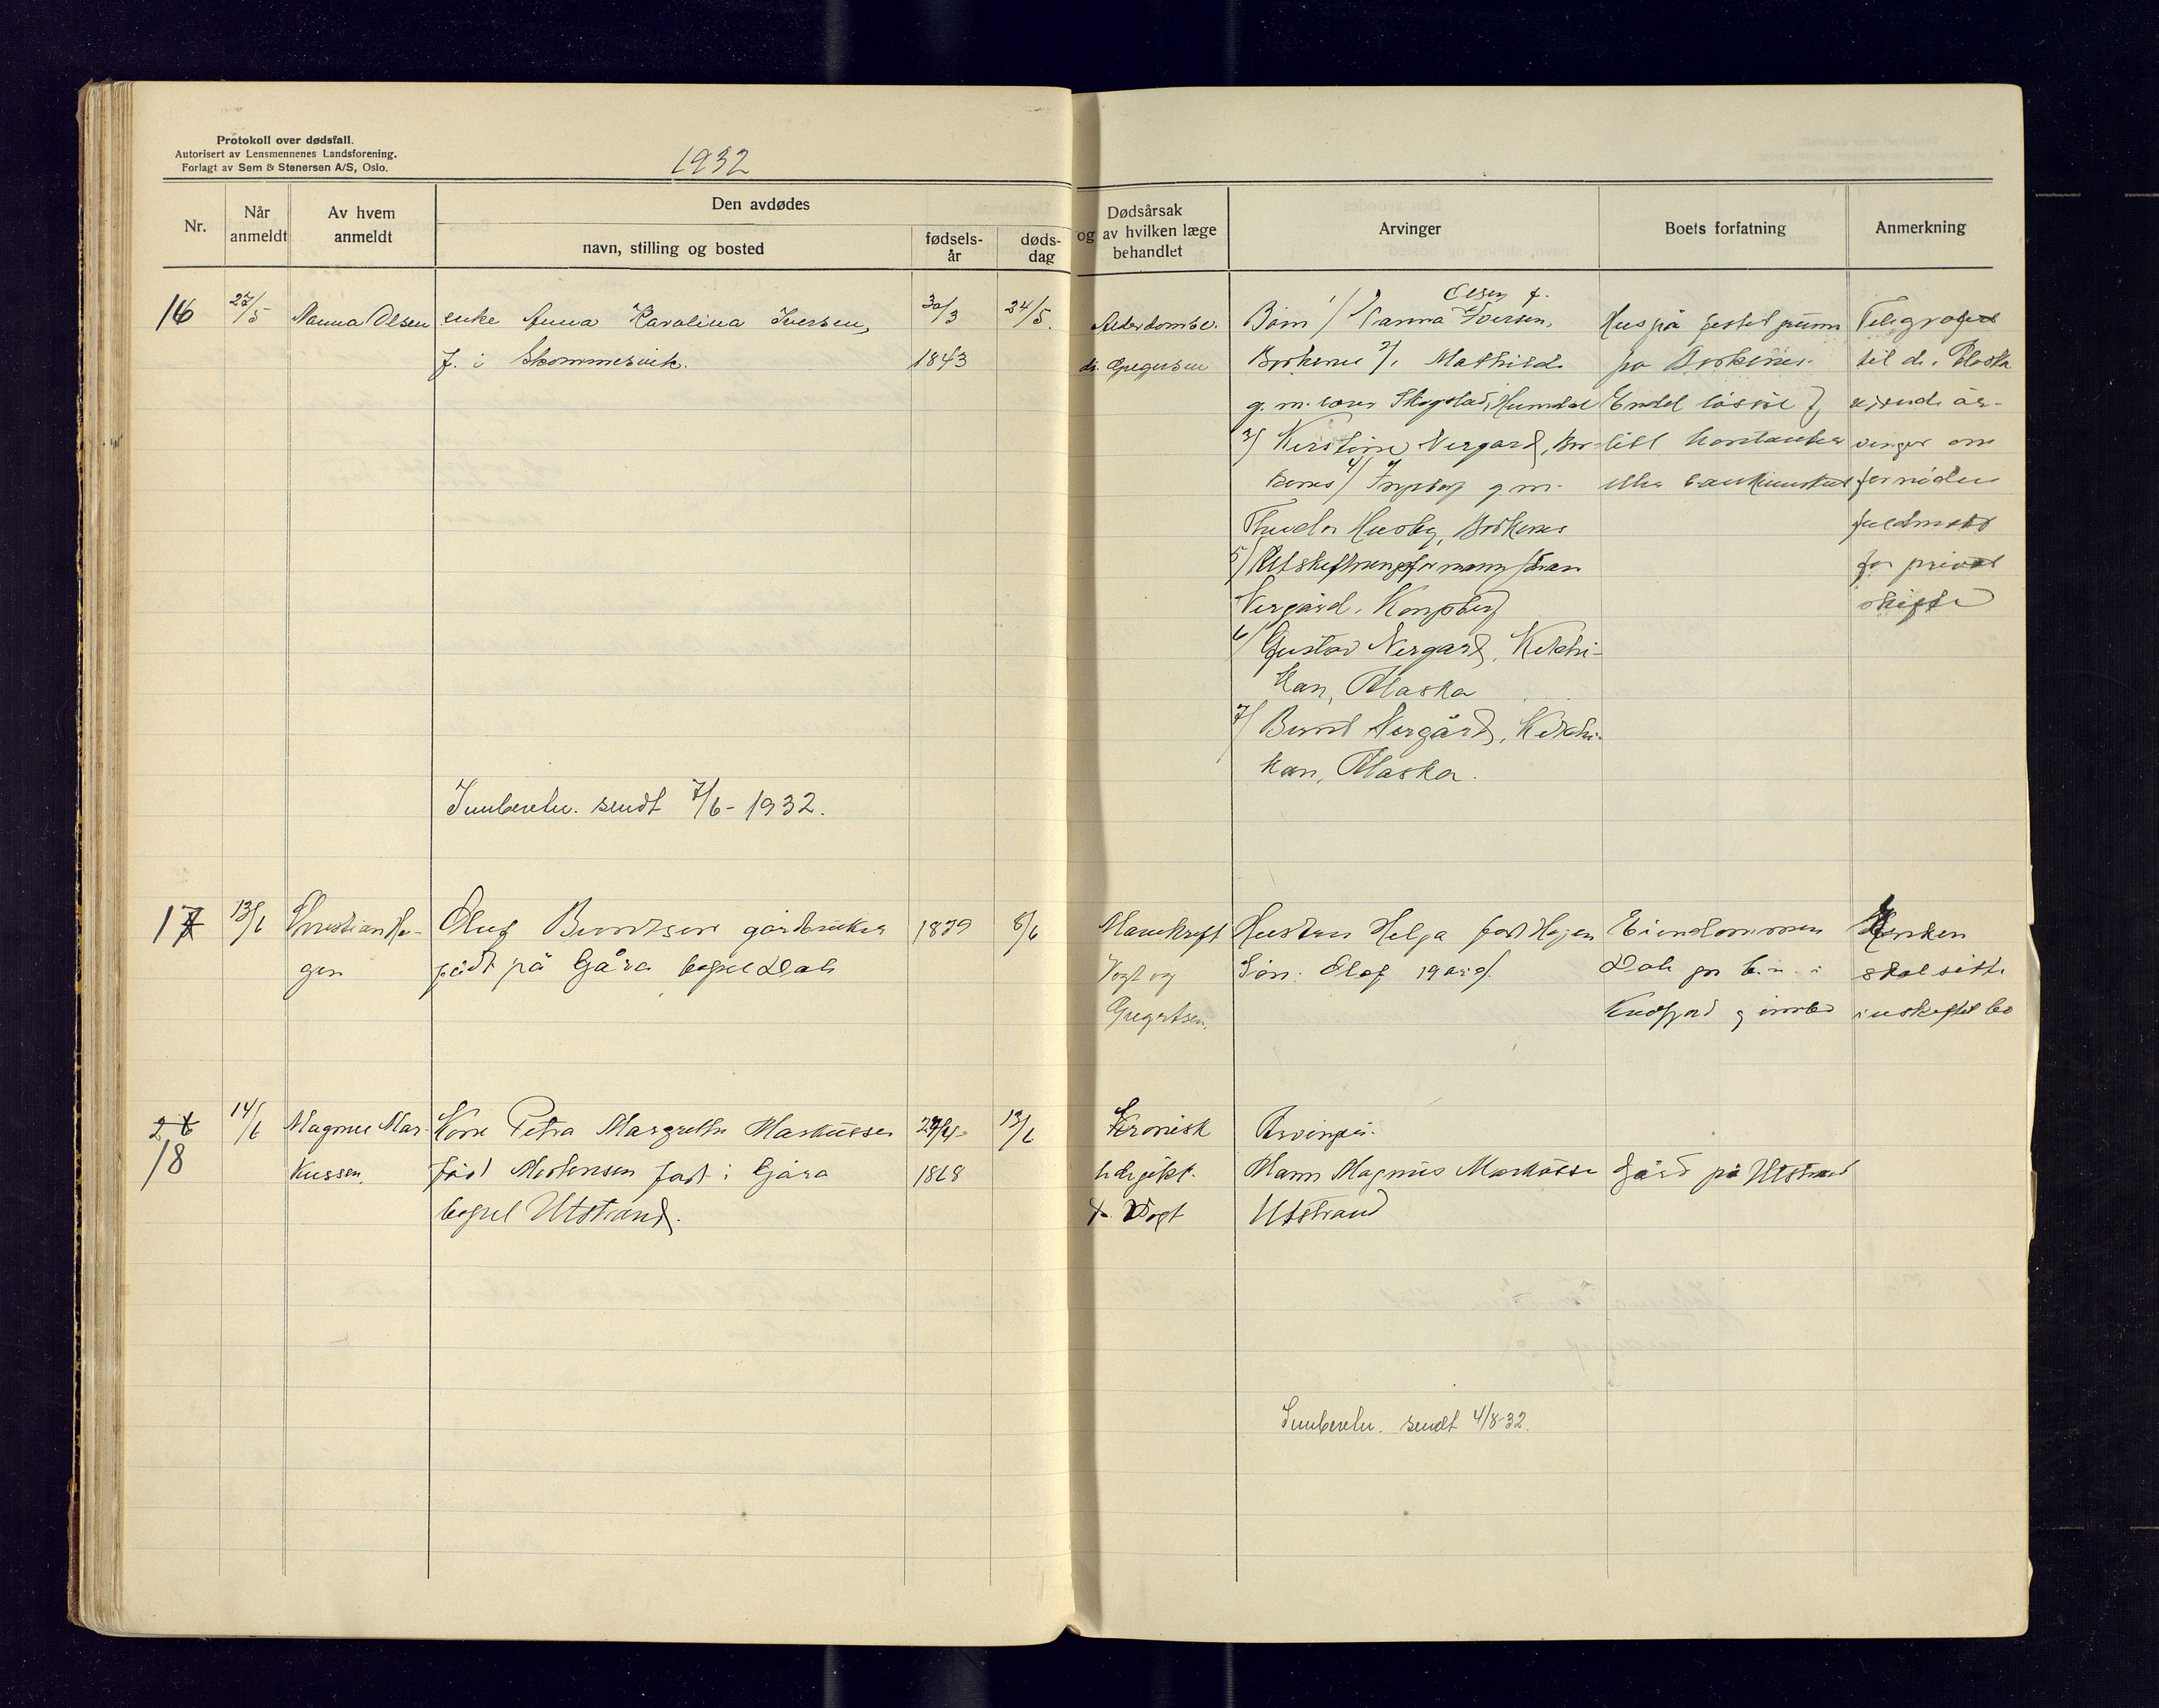 Protokoll over dødsfall.
Autorisert av Lensmennenes Landsforening.
Forlagt av Sem & Stenersen A/S, Oslo.
1932
Nr.
Når anmeldt
Av hvem anmeldt
Den avdødes
navn, stilling og bosted
fødsels-år
døds-dag
Dødsårsak
og av hvilken læge
behandlet
Arvinger
Boets forfatning
Anmerkning
16
27/5
Nanna Olsen
enke Anna Karolina Iversen,
f. i Skommesvik.
30/3
1843
24/5.
Alderdomsv.
dr. Gregersen
Olsen f.
Barn 1/ Nanna Iversen,
Borkenes 2/. Mathilde
g. m. Skogstad, Humdal
3/ Kirstine Nergård, Bor-
kenes 4/ Ingeborg g. m.
Theodor Husby, Borkenes
5/ Utskiftningsformann Johan
Nergård, Kongsberg
6/ Gustav Nergård, Ketchi-
kan, Alaska
7/ Bernt Nergård, Ketchi-
kan, Alaska.
Hus på festet grunn
på Borkenes.
Endel løsøre &
litt kontanter
eller bankinnskud
Telegrafert
til de i Alaska
værende ar-
vinger om
fornøden
fuldmakt
for privat
skifte
Innberetn. sendt 7/6-1932.
17
13/6
Christian Ha-
gen
Oluf Berntsen gårdbruker
født på Gåra bopel Dale
1879
8/6
Mavekreft
Vogt og
Gregertsen.
Hustru Helga født Hagen
Søn: Olaf 19 år gl.
Eiendommen
Dale gr b.n. i
Kvæfjord og innbo
Enken
skal sitte
i uskiftet bo
18
14/6
Magnus Mar-
kussen.
Kone Petra Margrethe Markussen
født Mortensen født i Gjåra
bopel Utstrand.
27/4-
1868
13/6
Kronisk
ledegikt.
dr Vogt
Arvinger.
Mann Magnus Markussen
Utstrand
Gård på Utstrand
Innberetn. sendt 4/8-32.